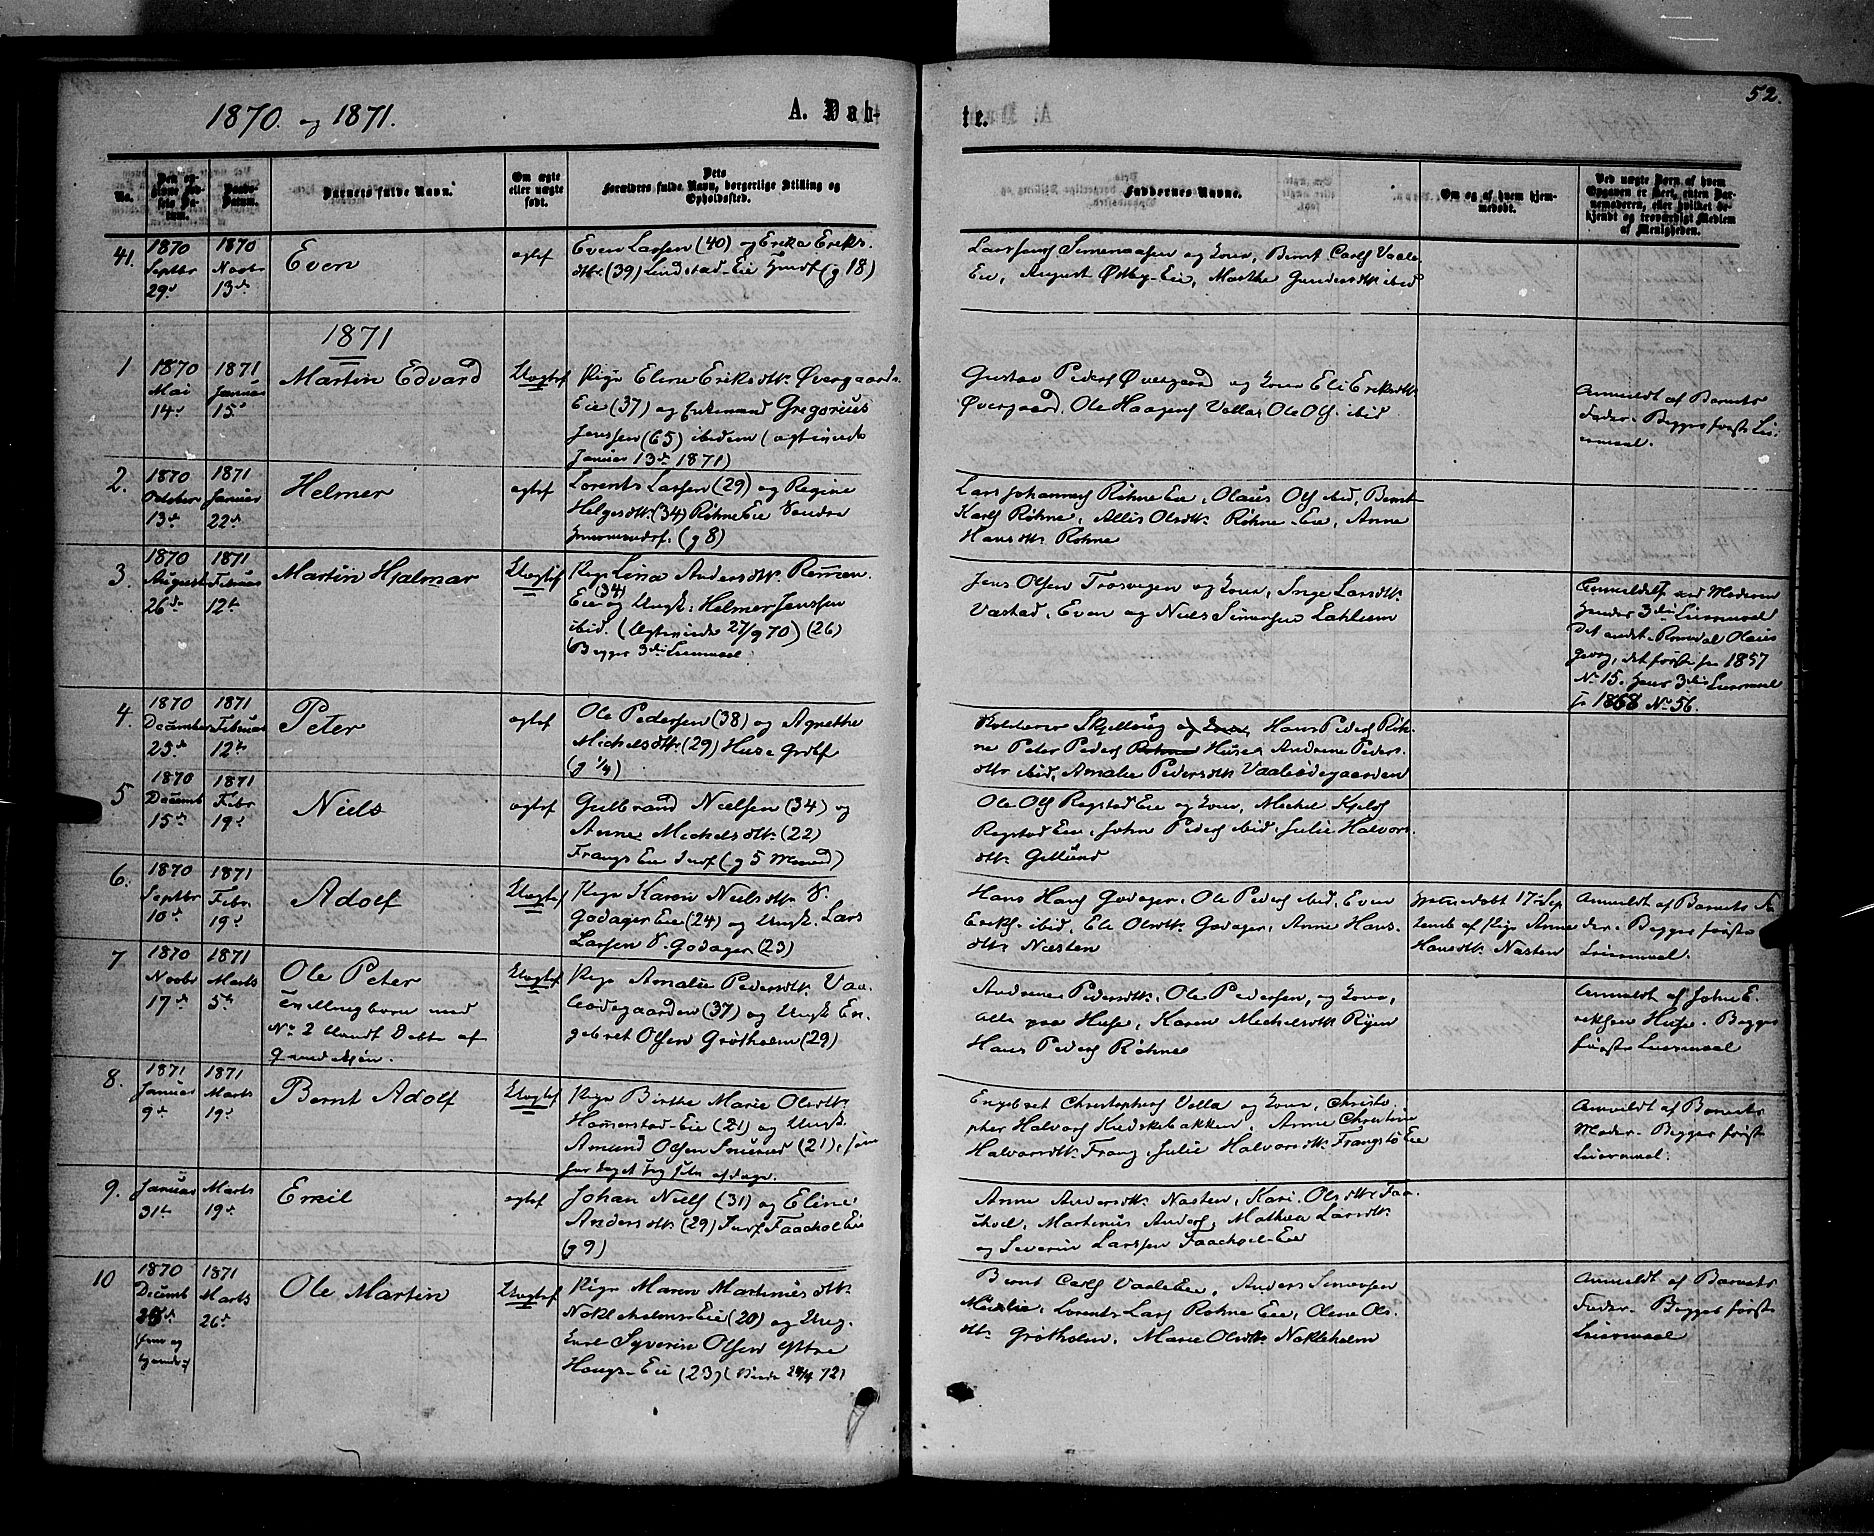 1870 og 1871.
A. Døb-
te.
52.
No.
Den og
Daabs-
Datum.
Barnets fulde Navn.
Om ægte
eller uægte
født.
Dets
Forældres fulde Navn, borgerlige Stilling og
Opholdssted.
Faddernes Navne.
Om og af hvem hjem-
medøbt.
Ved uægte Børn, af hvem
Opgaven er skeet, enten Bar-
nemoderen, eller hvilket be-
kjendt og troværdigt Medlem
af Menigheden.
41.
1870
Septbr
29d
1870
Novbr
13de
Even
ægtef
Even Larsen (40) og Erika Eriks-
dtr (39) Lindstad-Eie Indf (g 18)
Lars Jensen Simensen og Kone, Bernt Carls Vaale
Eie, August Østby-Eie, Marthe Gundersdtr ibid
1871
1
1870
Mai
14d
1871
Januar
15d
Martin Edvard
Uægtef
Pige Eline Eriksdtr Øvergaards-
Eie (37) og Enkemand Gregorius
Jenssen (65) ibidem (ægteviede
Januar 13de 1871)
Gustav Peders Øvergaard og Kone Eli Eriksdtr
Øvergaard, Ole Haagens Volla, Ole Ols ibid
Anmeldt af Barnets
Fader. Begges første Lei-
ermaal.
2.
1870
October
13de
1871
Januar
22de
Helmer
ægtef
Lorents Larsen (29) og Regine
Helgesdtr (34) Røhne Eie Søndre
(g 8)
Lars Johannes Røhne Eie, Olaus Ols ibid, Bernt
Karls Røhne, Allis Olsdtr Røhne-Eie, Anne
Hansdtr Røhne
3.
1870
August
26de
1871
Februar
12te
Martin Hjalmar
Uægtef
Pige Lina Andersdtr Remmen
Eie (34) og Ungk: Helmer Jenssen
ibid. (Ægteviede 27/9 70) (26)
Begges 3die Leiermaal
Jens Olsen Trosvegen og Kone, Inge Larsdtr
Vaestad, Even og Niels Simensen Lahlum
Anmeldelse ved Moderen
hendes 3die Leiermaal
Det andet Romedal Olaus
Georg, det første fra 1857
No 15. hans 3die Leiermaal
f 1868 No 56.
4.
1870
December
25de
1871
Februar
12te
Peter
ægtef
Ole Pedersen (38) og Agnethe
Michelsdtr (29) Huse
(g 1/4)
Skjelloug og Kone, Hans Peders Røh-
ne Peter Peders Røhne Huse, Andrine Peders-
dtr ibid, Amalie Pedersdtr Vaaleødegaarden
5
1870
Decemb
15de
1871
Febr
19d
Niels
ægtef
Gulbrand Nielsen (34) og
Anne Michelsdtr (22)
Frangs Eie Indf (g 5 Maaned)
Ole Ols Rogstad Eie og Kone, Michel Kjels
Rogstad Eie, John Peders ibid, Julie Halvors-
dtr Gillund
6.
1870
Septbr
10d
1871
Febr.
19d
Adolf
Uægtef
Pige Karen Nielsdtr S.
Godager Eie (24) og Ungk. Lars
Larsen S. Godager (23)
Hans Hans Godager, Ole Peders ibid, Even
Eriks. ibid, Ele Olsdtr Godager, Anne Hans-
dtr Næsten
Hjemmedøbt 17de Sep-
temb af Pige Anne
Hansdtr Næsten
Anmeldt af Barnets Fa-
der. Begges første
Leiermaal.
7
1870
Novbr
17de
1871
Marts
5te
Ole Peter
Tvillingbarn med
No 2 blandt Døbte af
Qvindekjøn.
Uægtef
Pige Amalie Pedersdtr Vaa-
leødegaarden (37) og Ungk En-
gebret Olsen Grøtholm (29)
Andrine Pedersdtr, Ole Pedersen, og Kone,
alle paa Huse, Karen Michelsdtr Ryen
Hans Peders Røhne
Anmeldt af John E-
riksen Huse. Begges
første Leiermaal
8.
1871
Januar
9de
1871
Marts
19d
Bernt Adolf
Uægtef
Pige Birthe Marie Olsdtr
Hommerstad-Eie (21) og Ungk.
Amund Olsen (21), som
har taget sig selv afdage.
Engebret Christophers Volla og Kone, Christo-
pher Halvors Kvedskebakken, Anne Christine
Halvorsdtr Frang, Julie Halvorsdtr Frangsto Eie
Anmeldt af Barnets
Moder. Begges første
Leiermaal.
9.
Januar
31te
Marts
19d
Emil
ægtef
Johan Niels (31) og Eline
Andersdtr (29) Indf. Faachol Eie
(g 9)
Anne Andersdtr Næsten, Kari Olsdtr Faa-
chol, Martinus Anders, Mathea Larsdtr
og Severin Larssen Faachol-Eie
10
1870
Decemb
1871
Marts
26d
Ole Martin
Uægtef
Pige Maren Martiniusdtr
Nokleholms-Eie (20) og Ung-
karl Syverin Olsen Yttre
Hougs-Eie (23) (Viede 24/4 72)
Bernt Carls Vaale Eie, Anders Simensen
Mælie, Lorents Lars Røhne Eie, Oline Ols-
dtr Grøtholm, Marie Olsdtr Nokleholm
Anmeldt af Barnets
Fader. Begges første
Leiermaal